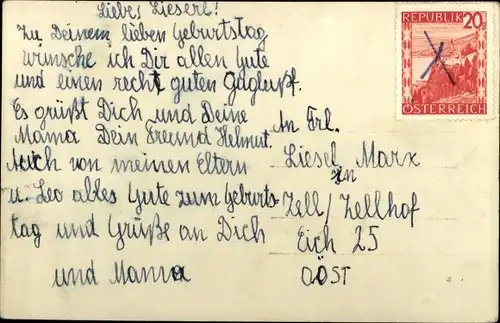 Liebes Lieserl!
Zu Deinem lieben Geburtstag
wünsche ich Dir allen Gute
und einen recht guten Guglupf.
Es grüßt Dich und Deine
Mama Dein Freund Helmut.
Auch von meinen Eltern
u. Leo alles Gute zum Geburts-
tag und Grüße an Dich
und Mama
REPUBLIK 20
ÖSTERREICH
An Frl.
Liesel Marx
in
Zell/Zellhof
Eich 25
OÖST